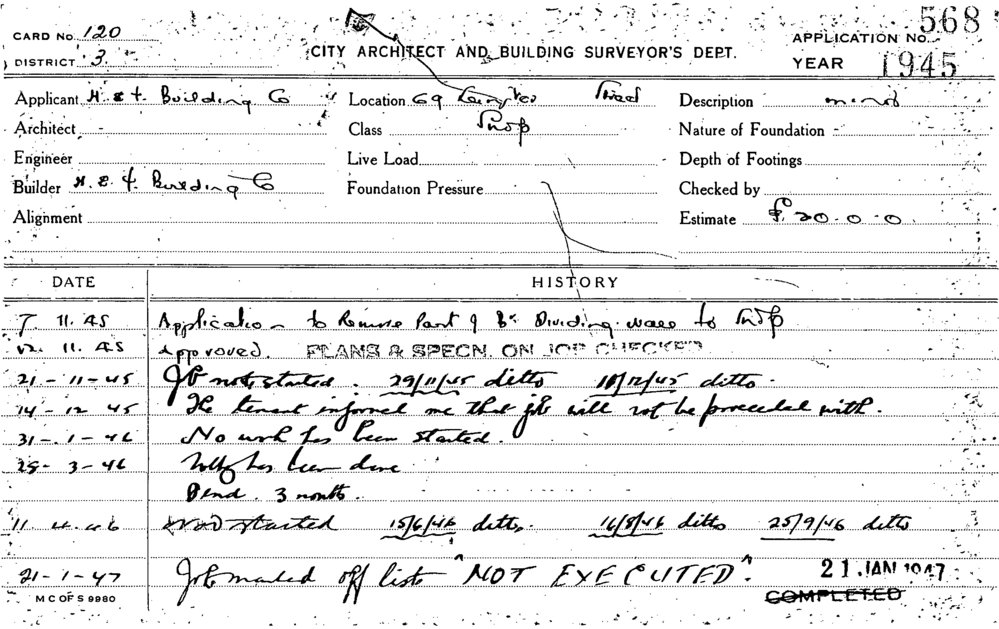 CARD No. 120
DISTRICT 3
CITY ARCHITECT AND BUILDING SURVEYOR'S DEPT.
APPLICATION No. 568
YEAR 1945
Applicant H. & t. Building Co
Location 69 Street
Description minor
Architect
Class Shop
Nature of Foundation
Engineer
Live Load
Depth of Footings
Builder H. & t. Building Co
Foundation Pressure
Checked by
Alignment
Estimate £ 20.0.0
DATE HISTORY
7. 11. 45 Application to Remove Part of Bk Dividing wall to Shop
12. 11. 45 Approved. PLANS & SPECN. ON JOB CHECKED
21-11-45 Job not started. 29/11/45 ditto 10/12/45 ditto.
14-12 45 The tenant informed me that job will not be proceeded with.
31-1-46 No work has been started.
29-3-46 has been done
Pend. 3 months.
11. 4.46 Not started 15/6/46 ditto. 16/8/46 ditto 25/9/46 ditto
21-1-47 Job marked off list "NOT EXECUTED". 21 JAN 1947
M C OF S 9980 COMPLETED